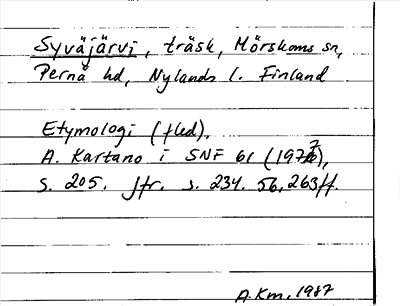 Syväjärvi, träsk, Mörskoms sn,
Pernå hd, Nylands l. Finland
Etymologi (fled).
A. Kartano i SNF 61 (1977),
s. 205. Jfr. s. 234. 56, 263ff.
A.Km. 1987